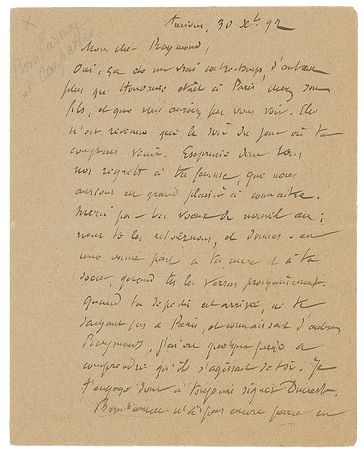 Bombarnac
et Carpathes
30 Xbre 92
Mon cher Raymond,
Oui, ça été un vrai contre-temps, d'autant
plus que Honorine était à Paris, chez son
fils, et que vous auriez pu vous voir. Elle
n'est revenue que le soir du jour où tu
comptais venir. Exprime donc tous
nos regrets à ta femme, que nous
aurions eu grand plaisir à connaître.
Merci pour tes vœux de nouvel an ;
nous te les retournons, et donnes-en
une bonne part à ta mère et à ta
sœur, quand tu les verras prochainement.
Quand ta dépêche est arrivée, ne te
sachant pas à Paris, et connaissant d'autres
Raymond, j'ai eu quelque peine à
comprendre qu'il s'agissait de toi. Je
t'engage donc à toujours signer Ducrest.
Bombarnac n'a pas encore paru en